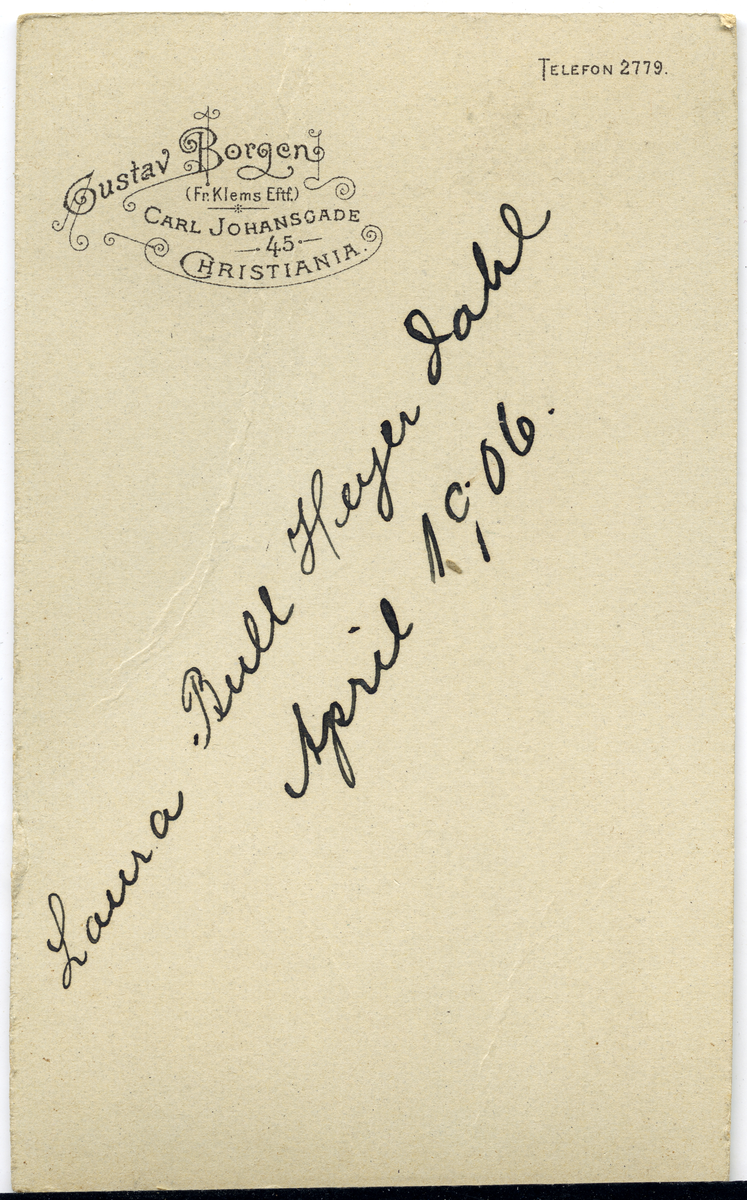 TELEFON 2779.
Gustav Borgen
(Fr. Klems Eftf.)
CARL JOHANSGADE
45
CHRISTIANIA.
Laura Bull Heyer Dahl
April 1906.